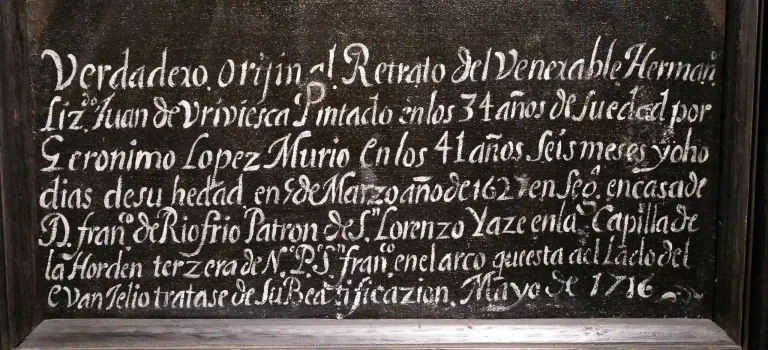 Verdadero. orijinal. Retrato del Venerable Herman.º
Liz.do Juan de Vriviesca Pintado enlos 34 años de suedad por
Geronimo Lopez Murio Enlos 41 años seis meses y oho
dias desu hedad en 5 de Marzo año de 1627 en Seg.ª encasa de
D. fran.co de Riofrio Patron de S.n Lorenzo Yaze enla Capilla de
la Horden terzera de N. P. S.n fran.co enel arco questa ael Lado del
evanJelio tratase de Su Beatificazion. Mayo de 1716